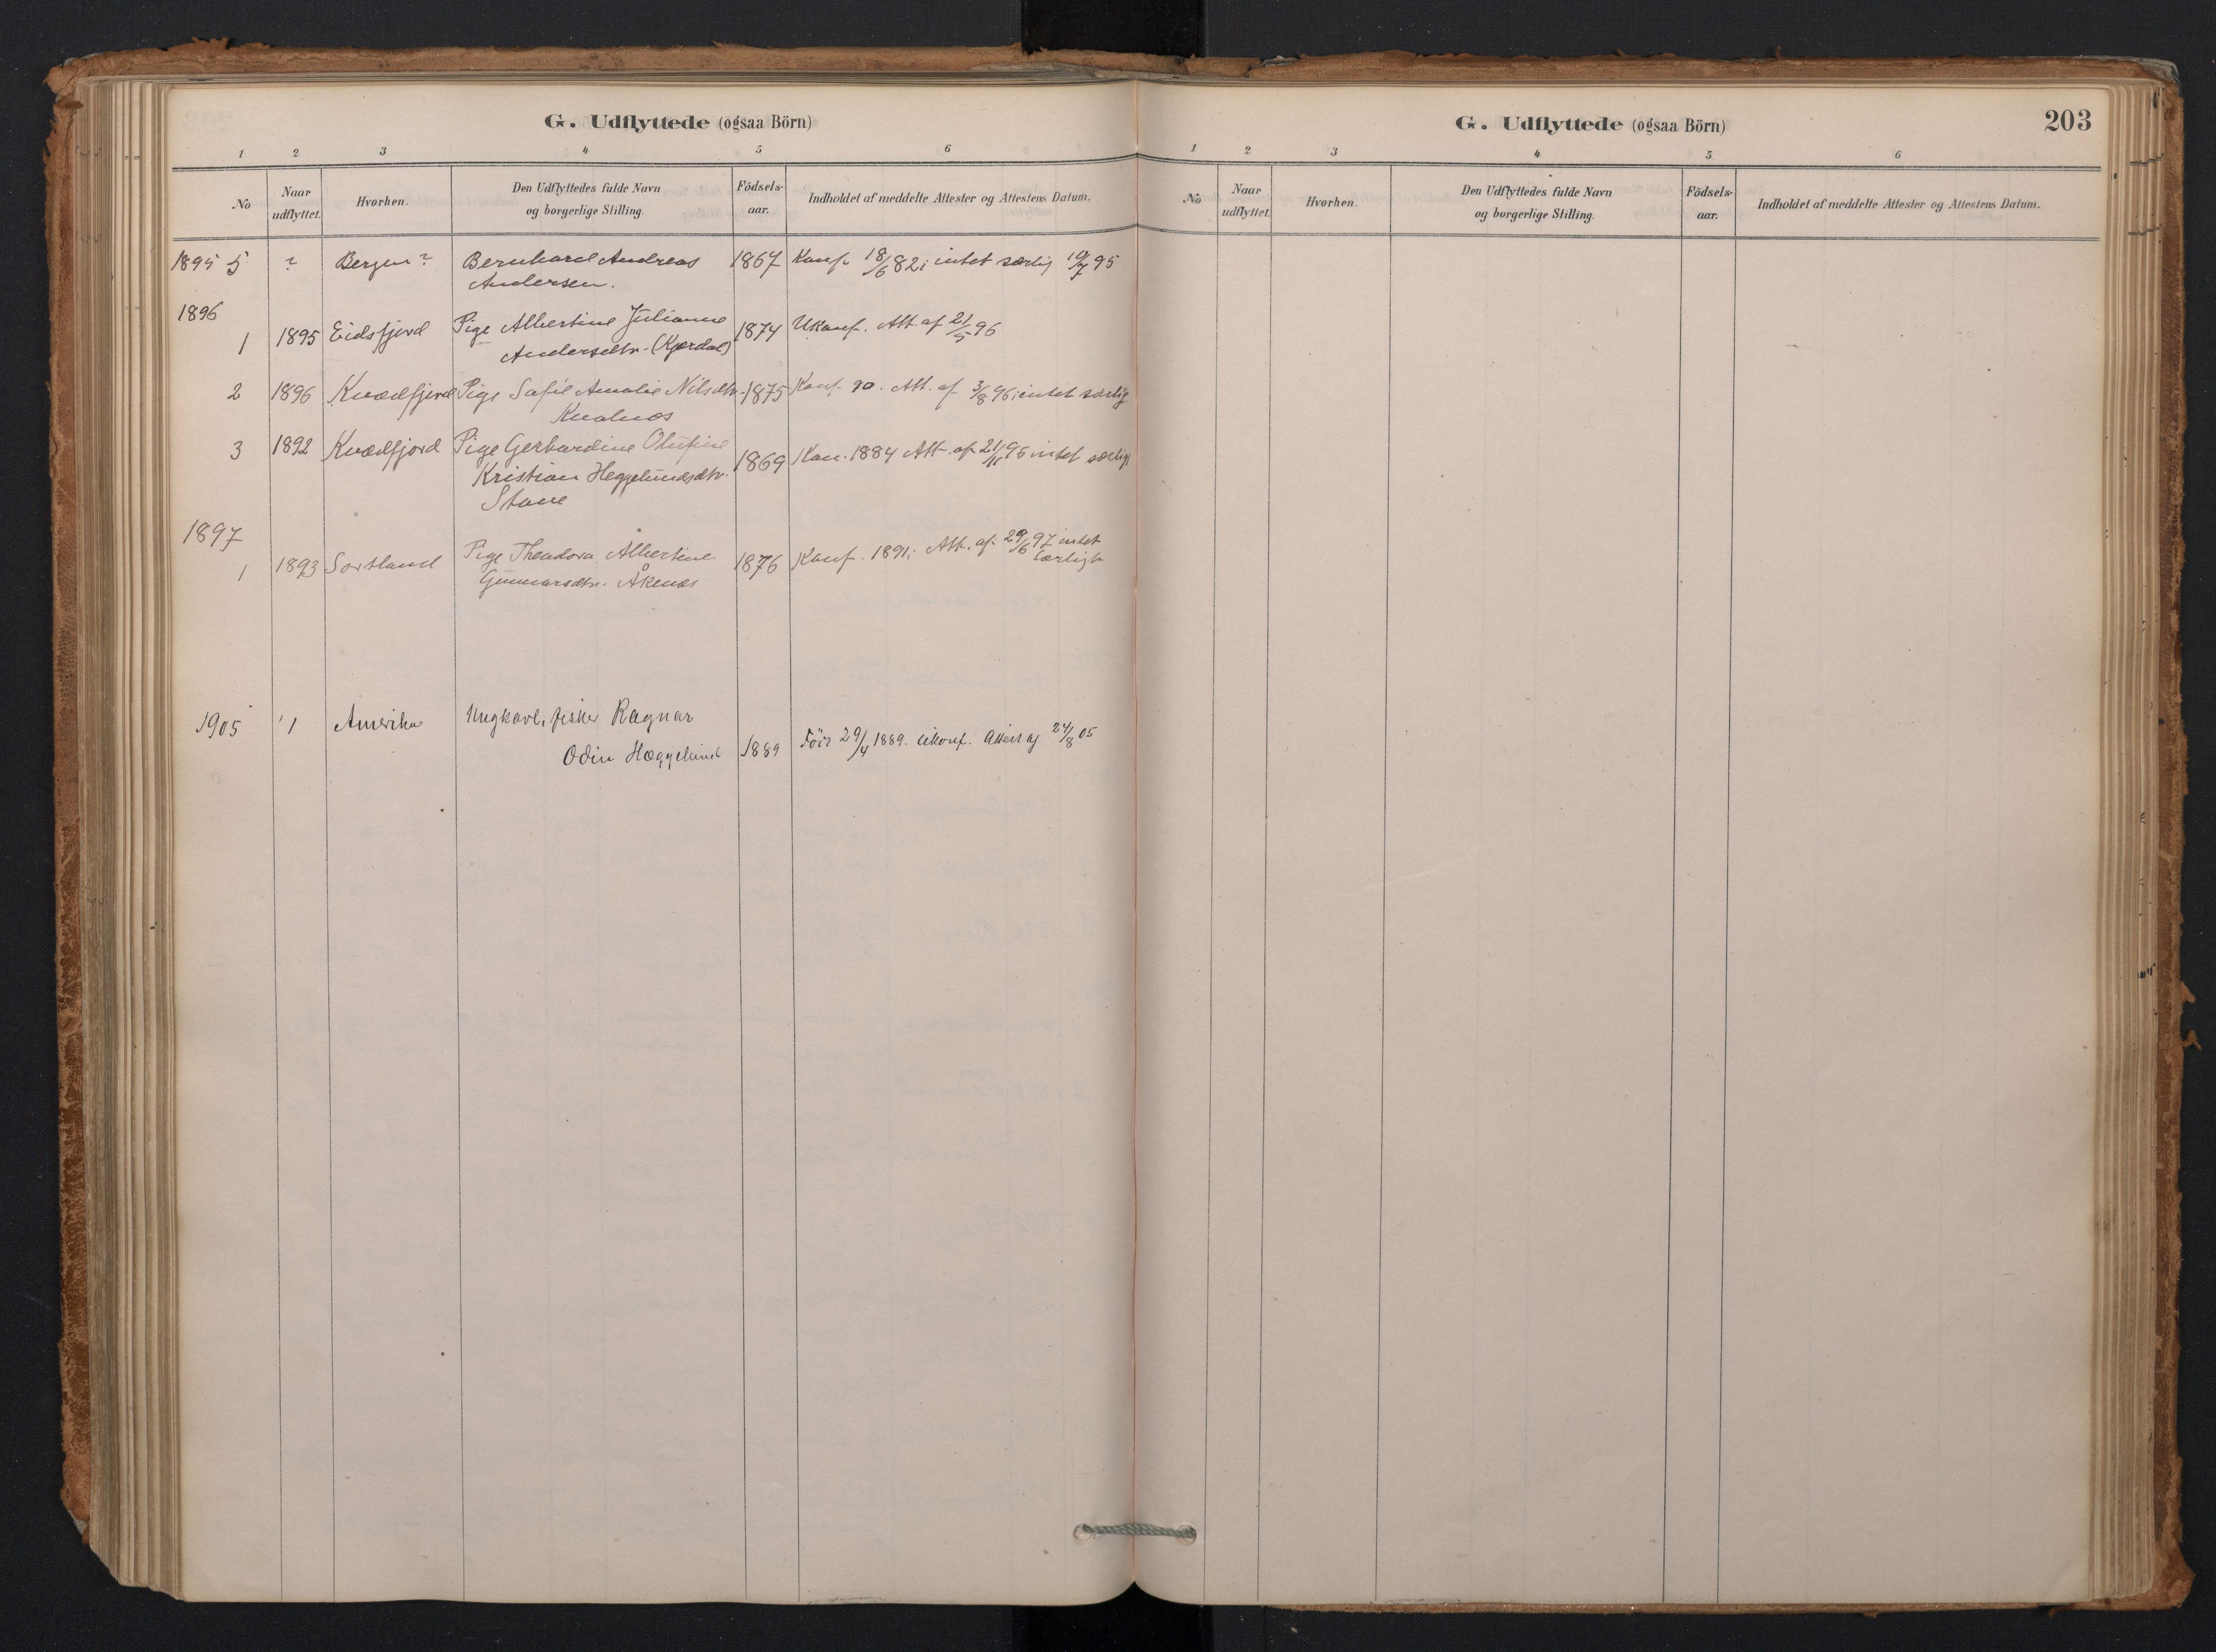 G. Udflyttede (ogsaa Börn)
1 2 3 4 5 6
No
Naar udflyttet.
Hvorhen.
Den Udflyttedes fulde Navn og borgerlige Stilling.
Födsels-aar.
Indholdet af meddelte Attester og Attestens Datum.
1895 5 ? Bergen? Bernhard Andreas 1867 Konf. 18/6 82; intet særlig 10/7 95
Andersen.
1896
1 1895 Eidsfjord Pige Albertine Julianne 1874 Ukonf. Att. af 21/5 96
Andersdtr. (Kjørdal)
2 1896 Kvædfjord Pige Sofie Amalie Nilsdtr. 1875 Konf. 90. Att. af 3/8 96; intet særlig
Kvalnæs
3 1892 Kvædfjord Pige Gerhardine Olufine
Kristian Heggelundsdtr. 1869 Kon. 1884 Att. af 21/11 95 intet særligt
Stave
1897
1 1893 Sortland Pige Theodora Albertine 1876 Konf. 1891; Att. af 29/6 97 intet særligt
Gunnarsdtr. Åkenæs
1905 1 Amerika Ungkarl, fisker Ragnar
Odin Hæggelund 1889 Född 29/4 1889. Ukonf. Attest ag 24/8 05
G. Udflyttede (ogsaa Börn)
203
1 2 3 4 5 6
No
Naar udflyttet.
Hvorhen.
Den Udflyttedes fulde Navn og borgerlige Stilling.
Födsels-aar.
Indholdet af meddelte Attester og Attestens Datum.